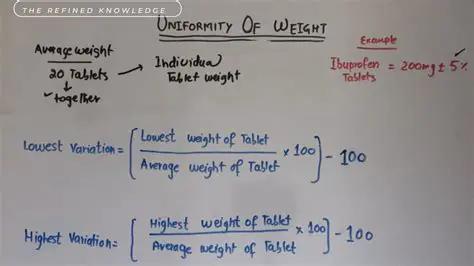 THE REFINED KNOWLEDGE
UNIFORMITY OF WEIGHT
Average weight
20 Tablets
together
Individual
Tablet weight
Example
Ibuprofen = 200mg ± 5%
Tablets
Lowest Variation = [Lowest weight of Tablet / Average weight of Tablet × 100] - 100
Highest Variation = [Highest weight of Tablet / Average weight of Tablet × 100] - 100